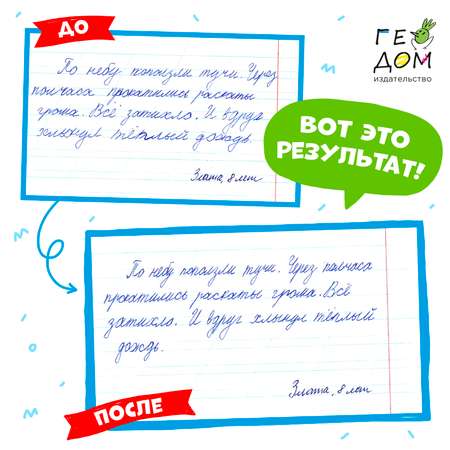 ДО
ГЕ
ДОМ
издательство
По небу поползли тучи. Через
полчаса прокатились раскаты
грома. Всё затихло. И вдруг
хлынул тёплый дождь.
Злата, 8 лет
ВОТ ЭТО
РЕЗУЛЬТАТ!
По небу поползли тучи. Через полчаса
прокатились раскаты грома. Всё
затихло. И вдруг хлынул тёплый
дождь.
Злата, 8 лет
ПОСЛЕ